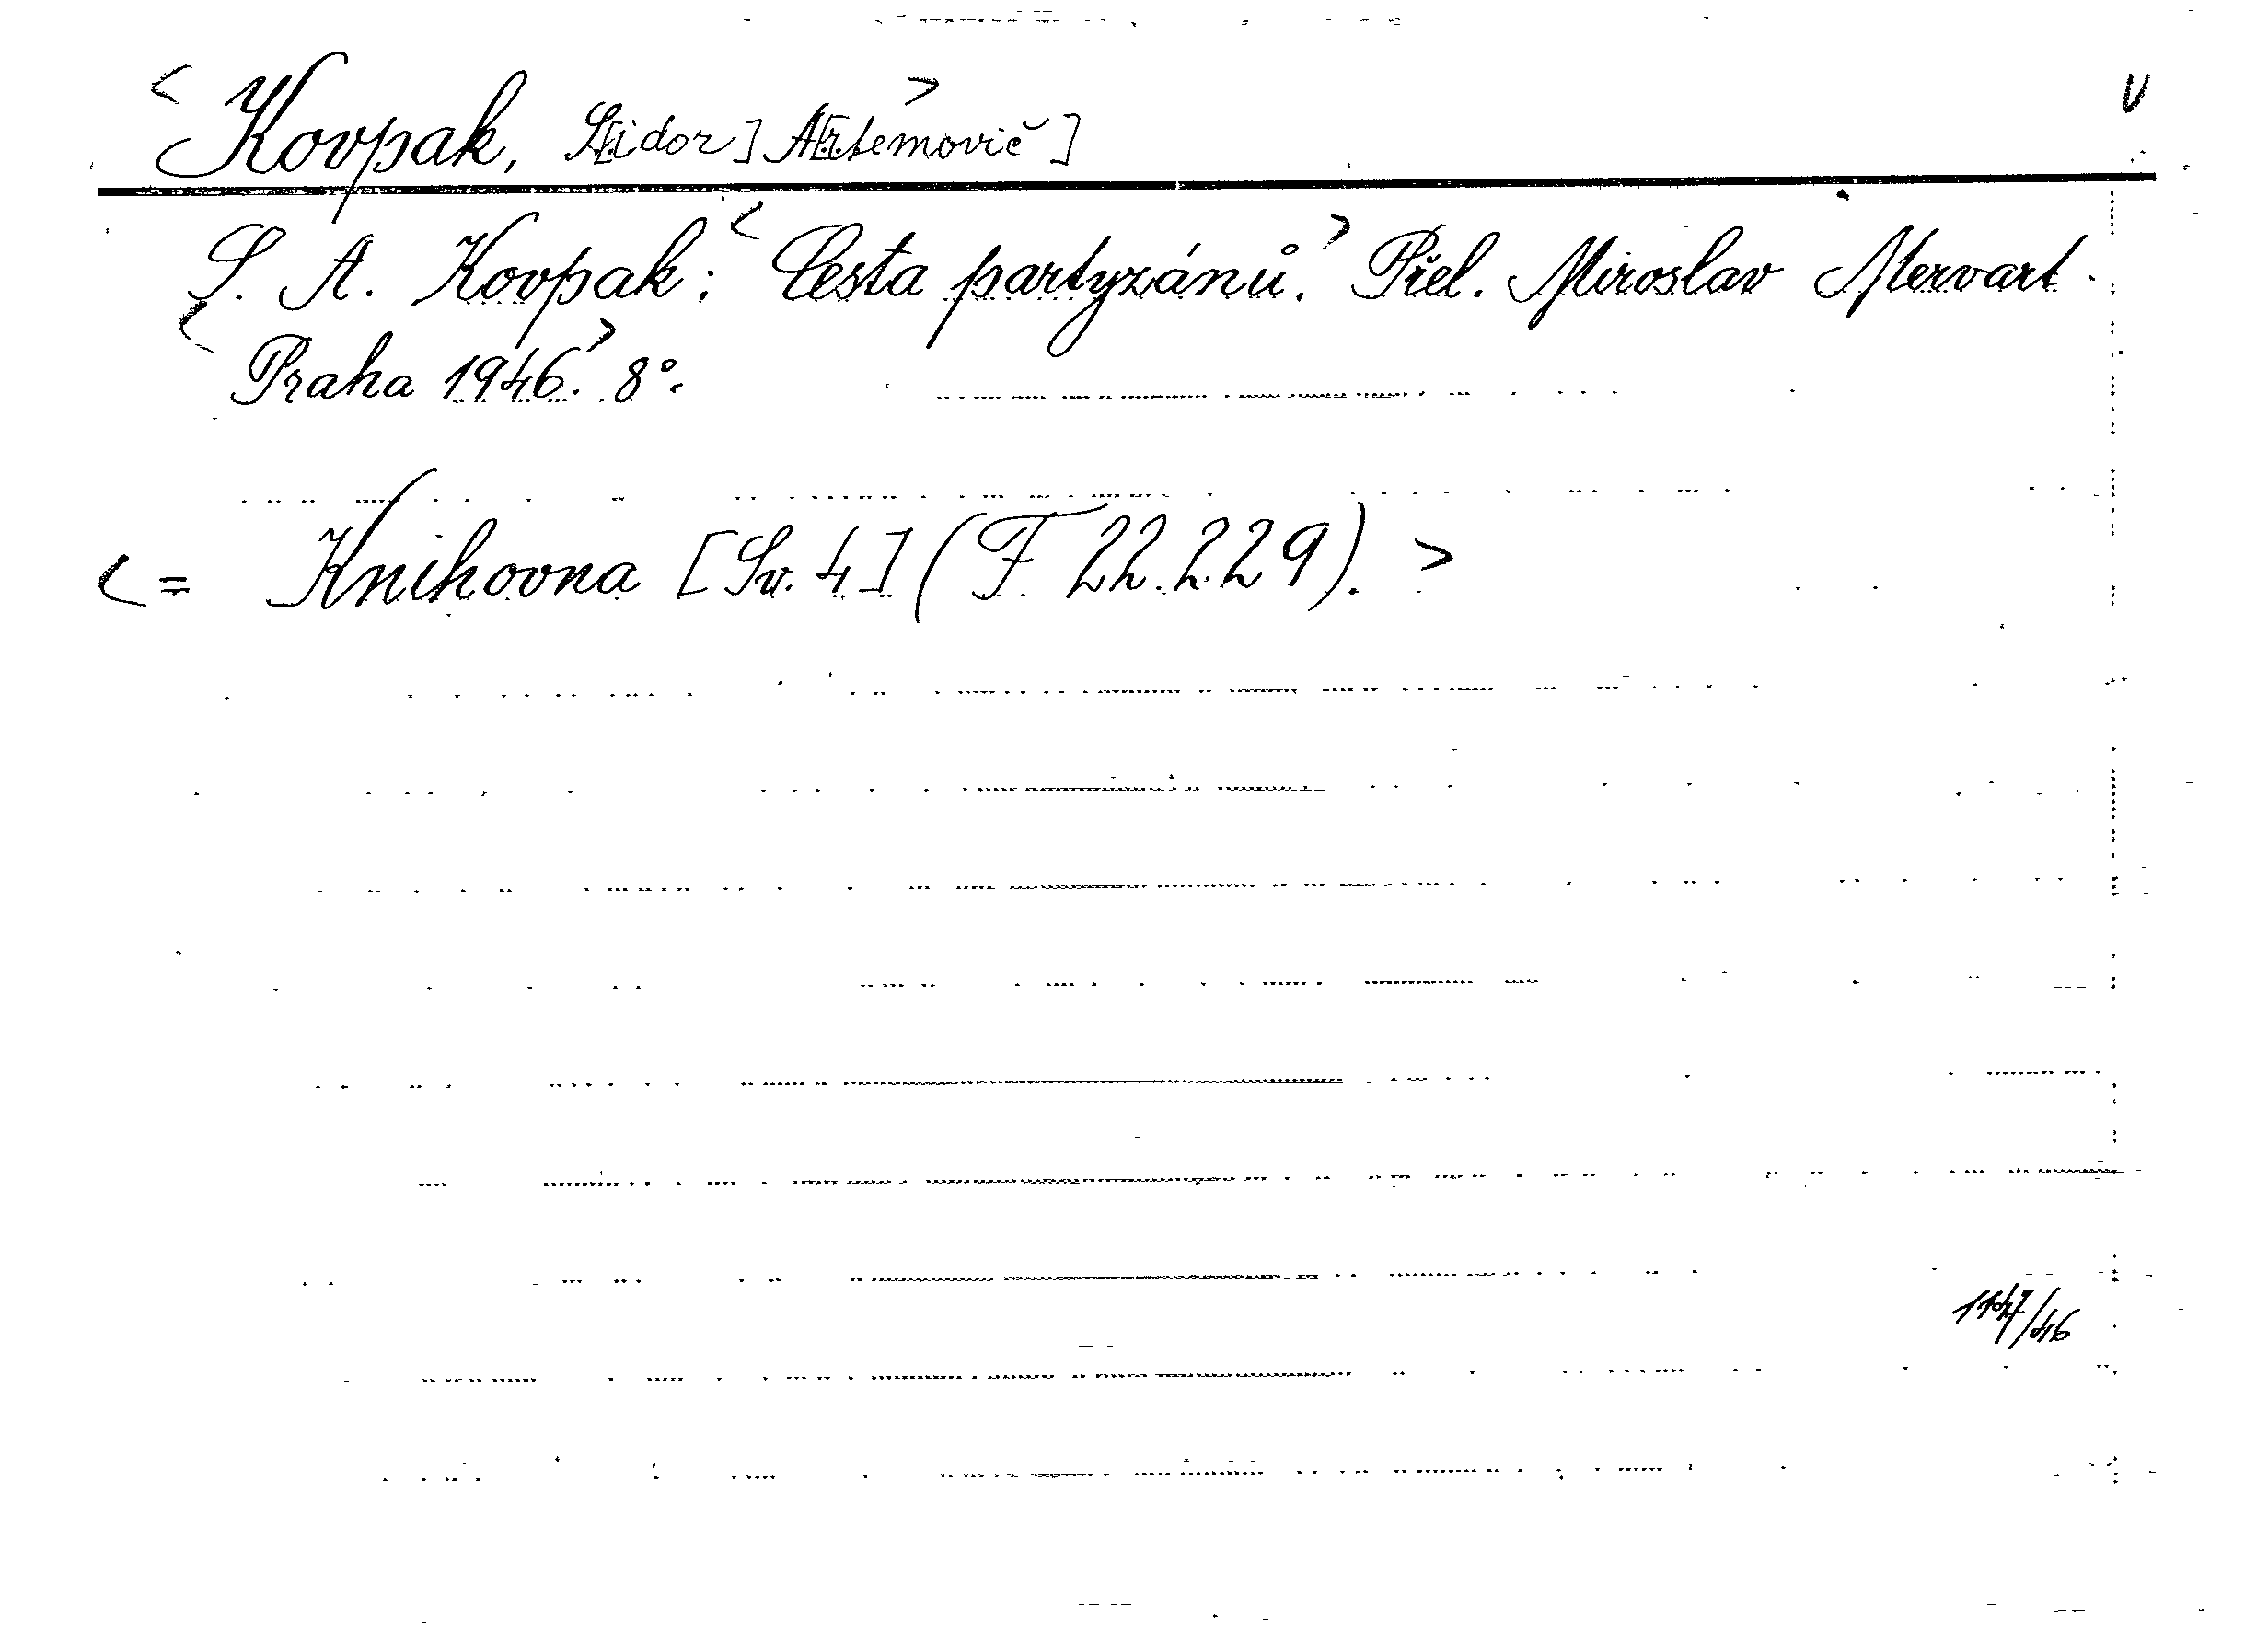 < Kovpak, S[idor] A[rtemovič] > V
S. A. Kovpak: < Cesta partyzánů. > Přel. Miroslav Mervart.
< Praha 1946. > 8°.
< = Knihovna [Sv. 4] (F 22.229). >